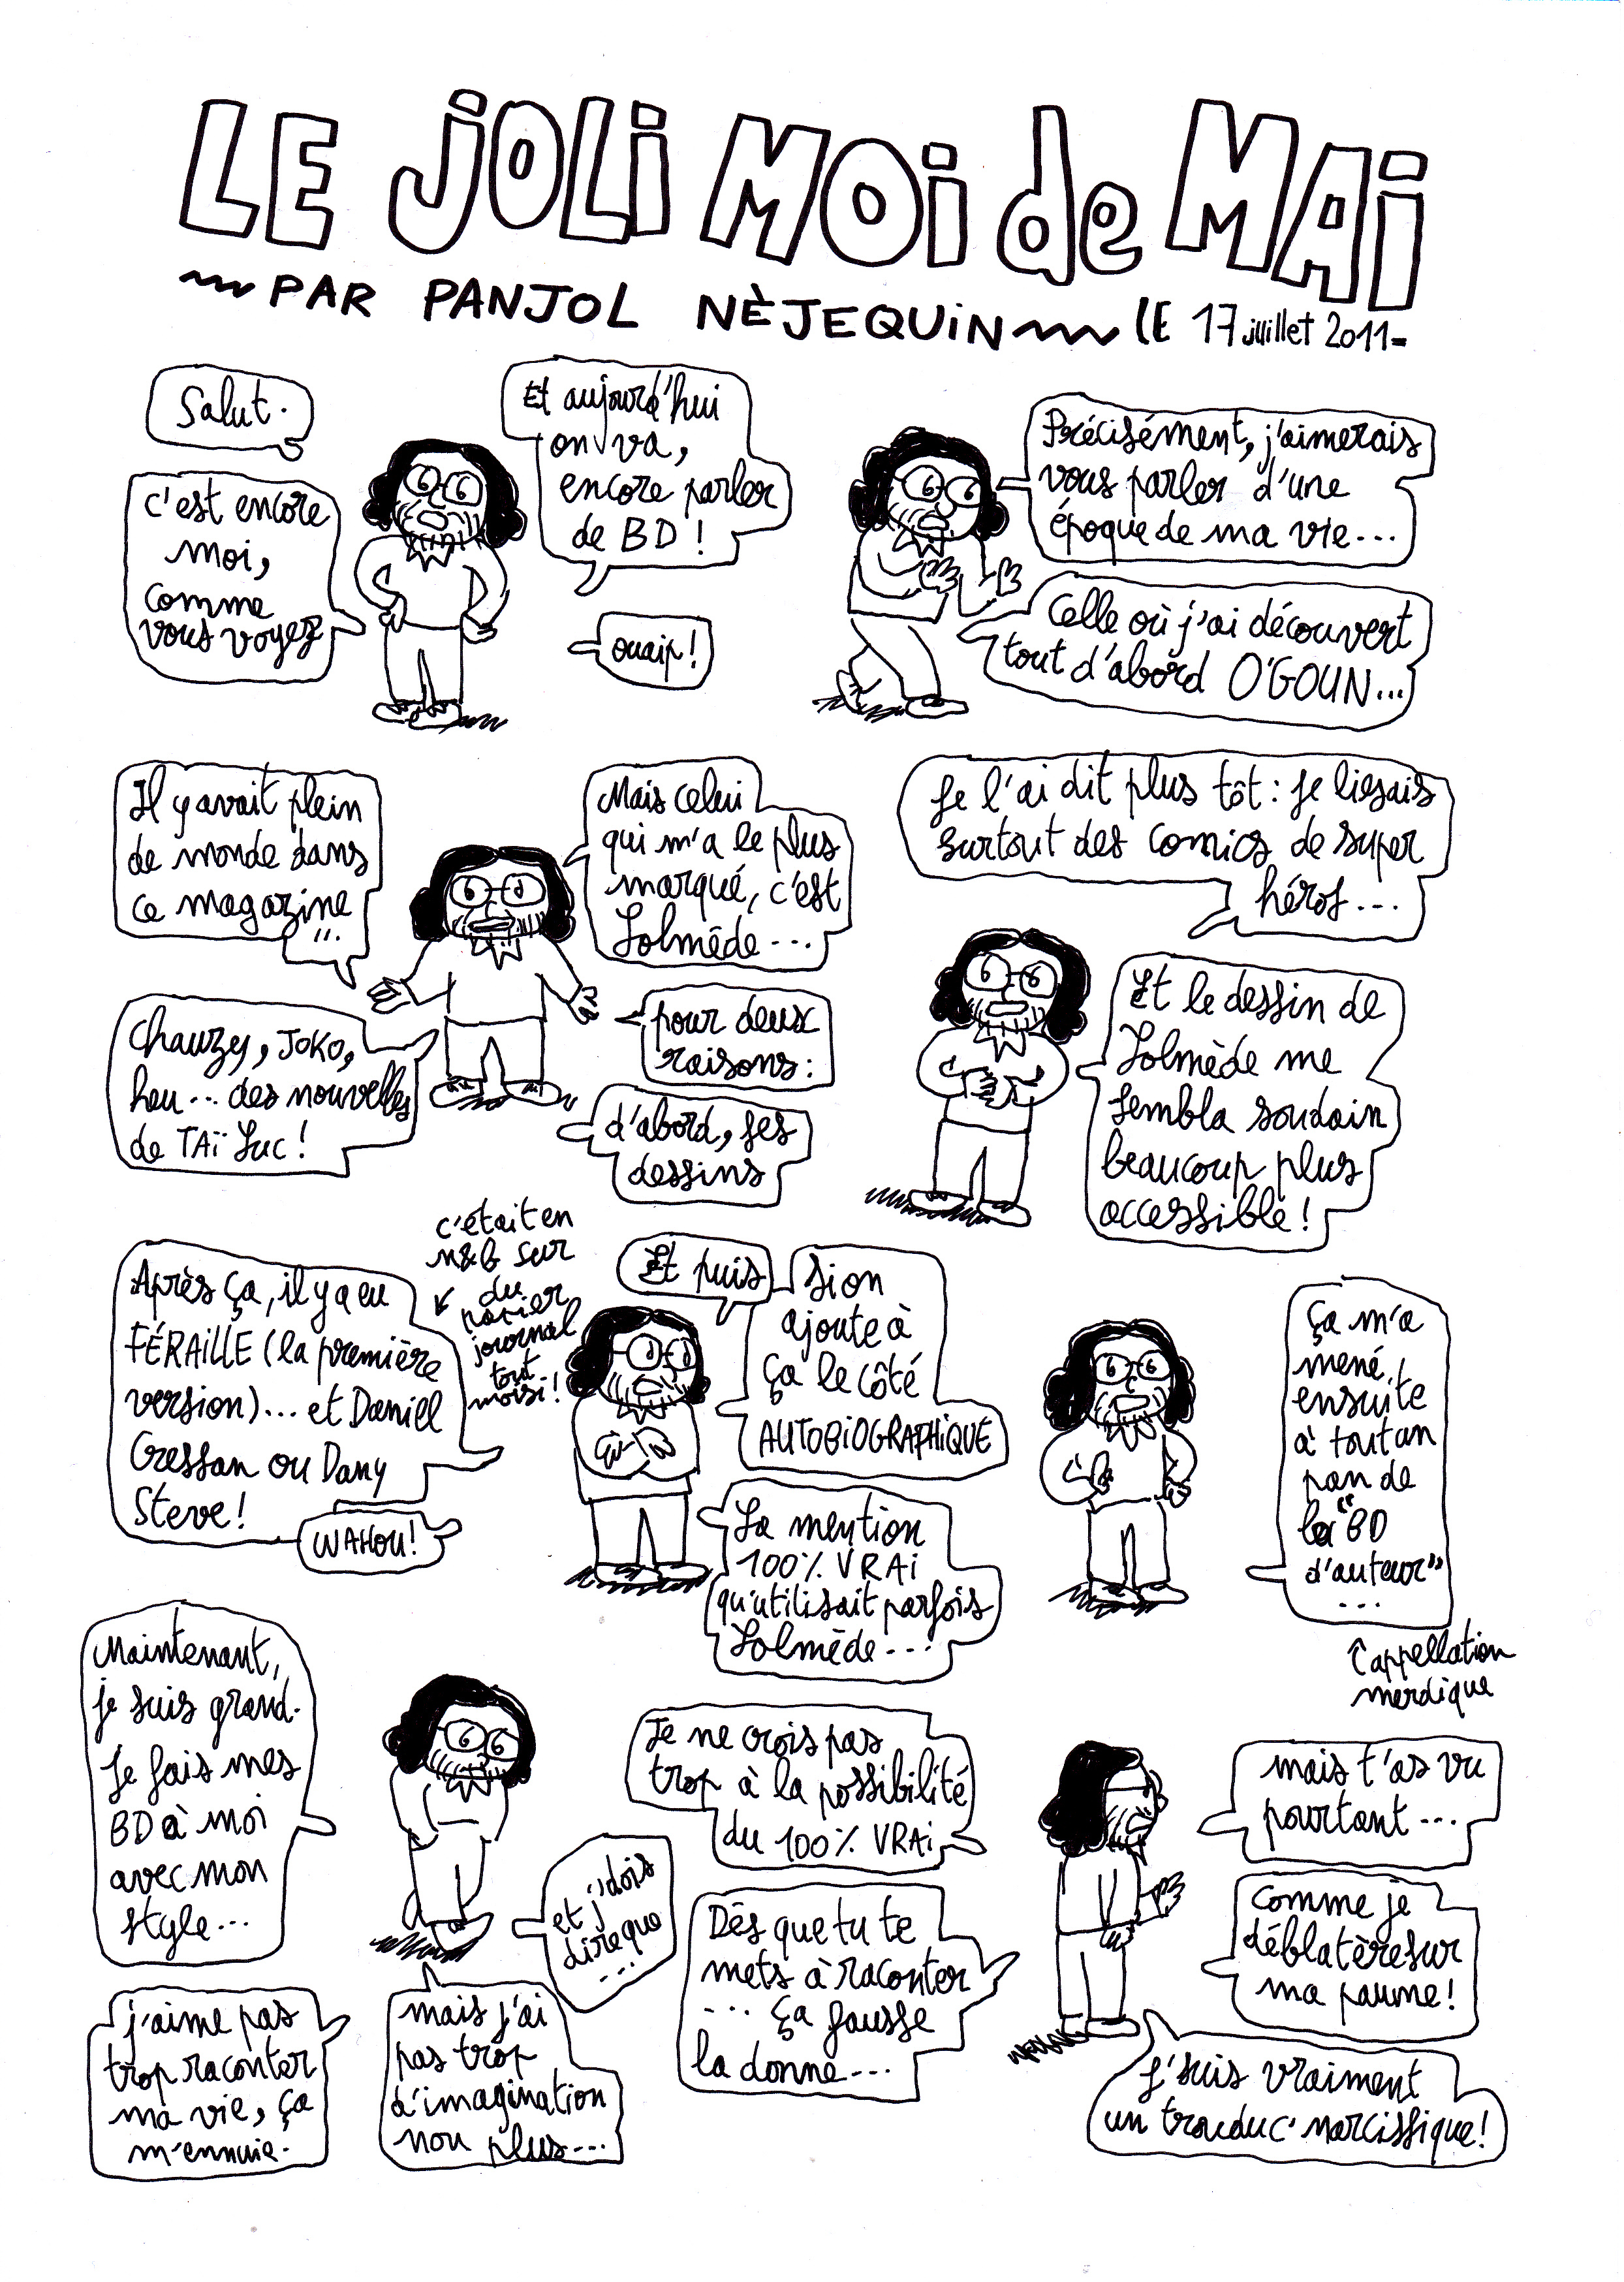 LE JOLi MOi de MAi
PAR PANJOL NÈJEQUiN LE 17 juillet 2011
Salut.
c'est encore
moi,
comme
vous voyez
Et aujourd'hui
on va,
encore parler
de BD !
ouaip!
Précisément, j'aimerais
vous parler d'une
époque de ma vie...
Celle où j'ai découvert
tout d'abord O'GOUN...
Il y avait plein
de monde dans
ce magazine
...
Chauzy, JOKO,
heu... des nouvelles
de TAï Luc !
Mais celui
qui m'a le plus
marqué, c'est
Lolmède...
pour deux
raisons :
d'abord, ses
dessins
Je l'ai dit plus tôt : je lisais
surtout des comics de super
héros...
Et le dessin de
Lolmède me
sembla soudain
beaucoup plus
accessible !
Après ça, il y a eu
FÉRAiLLE (la première
version)... et Daniel
Cressan ou Dany
Steve !
WAHOU!
c'était en
n&b sur
du
papier
journal
tout
moisi !
Et puis
si on
ajoute à
ça le côté
AUTOBiOGRAPHiQUE
La mention
100% VRAi
qu'utilisait parfois
Lolmède...
ça m'a
mené
ensuite
à tout un
pan de
la "BD
d'auteur"
...
appellation
merdique
Maintenant,
je suis grand.
Je fais mes
BD à moi
avec mon
style...
j'aime pas
trop raconter
ma vie, ça
m'ennuie.
mais j'ai
pas trop
d'imagination
non plus...
et j'dois
dire que
...
Je ne crois pas
trop à la possibilité
du 100% VRAi
Dès que tu te
mets à raconter
... ça fausse
la donne...
mais t'as vu
pourtant...
Comme je
déblatère sur
ma paume !
J'suis vraiment
un trouduc' narcissique !